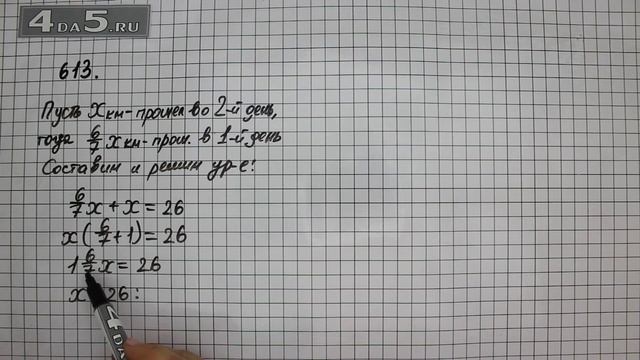 4DA5.RU
613.
Пусть x км-прошел во 2-й день,
тогда 6/7 x км-прош. в 1-й день
Составим и решим ур-е:
6/7 x + x = 26
x(6/7 + 1) = 26
1 6/7 x = 26
x 26 :
4DA